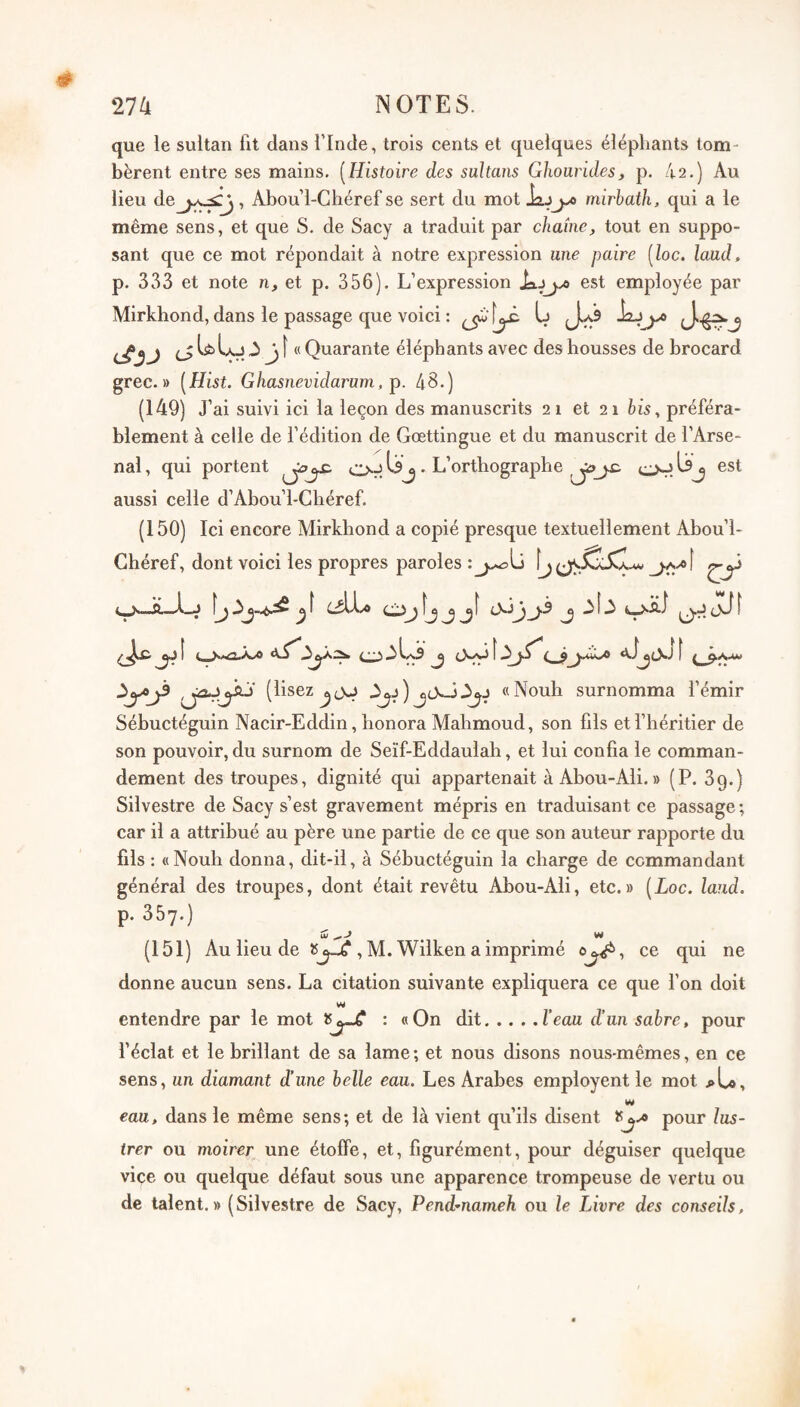 274 NOTES.
que le sultan fit dans l'Inde, trois cents et quelques éléphants tom-
bèrent entre ses mains. (Histoire des sultans Ghourides, p. 42.) Au
lieu de زنجير, Abou'l-Chéref se sert du mot مربط mirbath, qui a le
même sens, et que S. de Sacy a traduit par chaîne, tout en suppo-
sant que ce mot répondait à notre expression une paire (loc. laud.
p. 333 et note n, et p. 356). L'expression مربط est employée par
Mirkhond, dans le passage que voici : وچهل مربط فيل با غواشى
از ديباهاى رومى «Quarante éléphants avec des housses de brocard
grec.» (Hist. Ghasnevidarum, p. 48.)
(149) J'ai suivi ici la leçon des manuscrits 21 et 21 bis, préféra-
blement à celle de l'édition de Gœttingue et du manuscrit de l'Arse-
nal, qui portent . L'orthographe est
aussi celle d'Abou'l-Chéref.
(150) Ici encore Mirkhond a copié presque textuellement Abou'l-
Chéref, dont voici les propres paroles : نوح امير سبكتكين را بناصر
الدين لقب داد و فرزند او وارث ملك او محمود را بلقب
سيف الدوله مشرف گردانيد و قيادت منصب ابو على
بدو تفويض فرمود (lisez ) «Nouh surnomma l'émir
Sébuctéguin Nacir-Eddin, honora Mahmoud, son fils et l'héritier de
son pouvoir, du surnom de Seïf-Eddaulah, et lui confia le comman-
dement des troupes, dignité qui appartenait à Abou-Ali.» (P. 39.)
Silvestre de Sacy s'est gravement mépris en traduisant ce passage;
car il a attribué au père une partie de ce que son auteur rapporte du
fils : «Nouh donna, dit-il, à Sébuctéguin la charge de commandant
général des troupes, dont était revêtu Abou-Ali, etc.» (Loc. laud.
p. 357.)
(151) Au lieu de , M. Wilken a imprimé , ce qui ne
donne aucun sens. La citation suivante expliquera ce que l'on doit
entendre par le mot : «On dit. . . . . l'eau d'un sabre, pour
l'éclat et le brillant de sa lame; et nous disons nous-mêmes, en ce
sens, un diamant d'une belle eau. Les Arabes employent le mot ماء,
eau, dans le même sens; et de là vient qu'ils disent موّه pour lus-
trer ou moirer une étoffe, et, figurément, pour déguiser quelque
viçe ou quelque défaut sous une apparence trompeuse de vertu ou
de talent.» (Silvestre de Sacy, Pend-nameh ou le Livre des conseils,